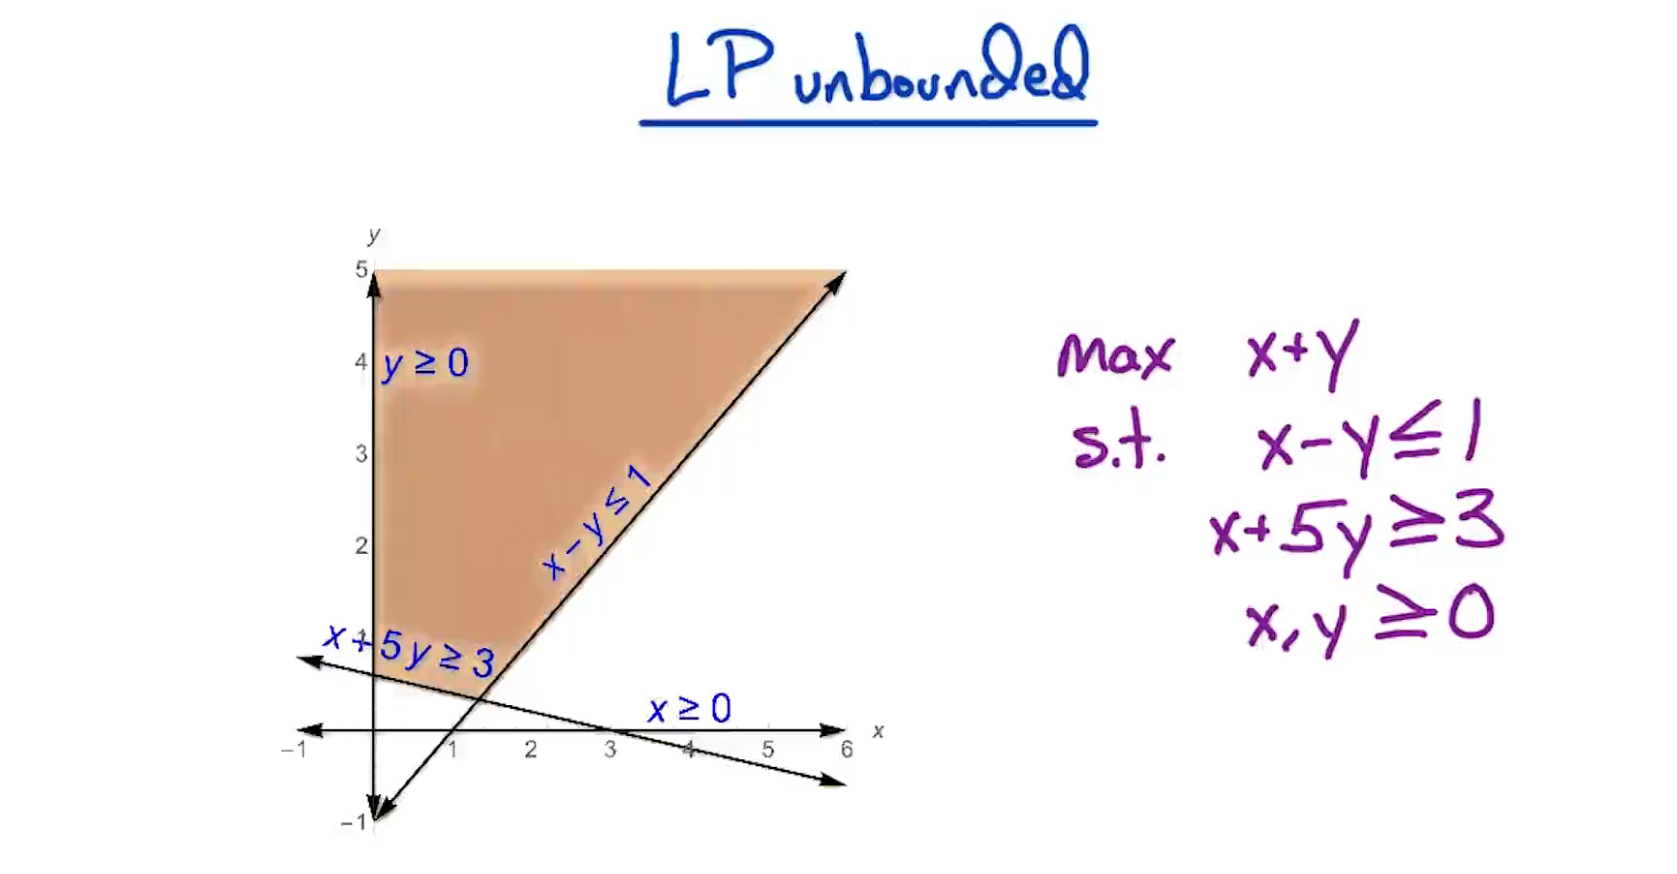 LP unbounded
y
5
4 y ≥ 0
3
2
x - y ≤ 1
1
x + 5y ≥ 3
x ≥ 0
x
-1 1 2 3 4 5 6
-1
max x+y
s.t. x-y≤1
x+5y≥3
x,y≥0